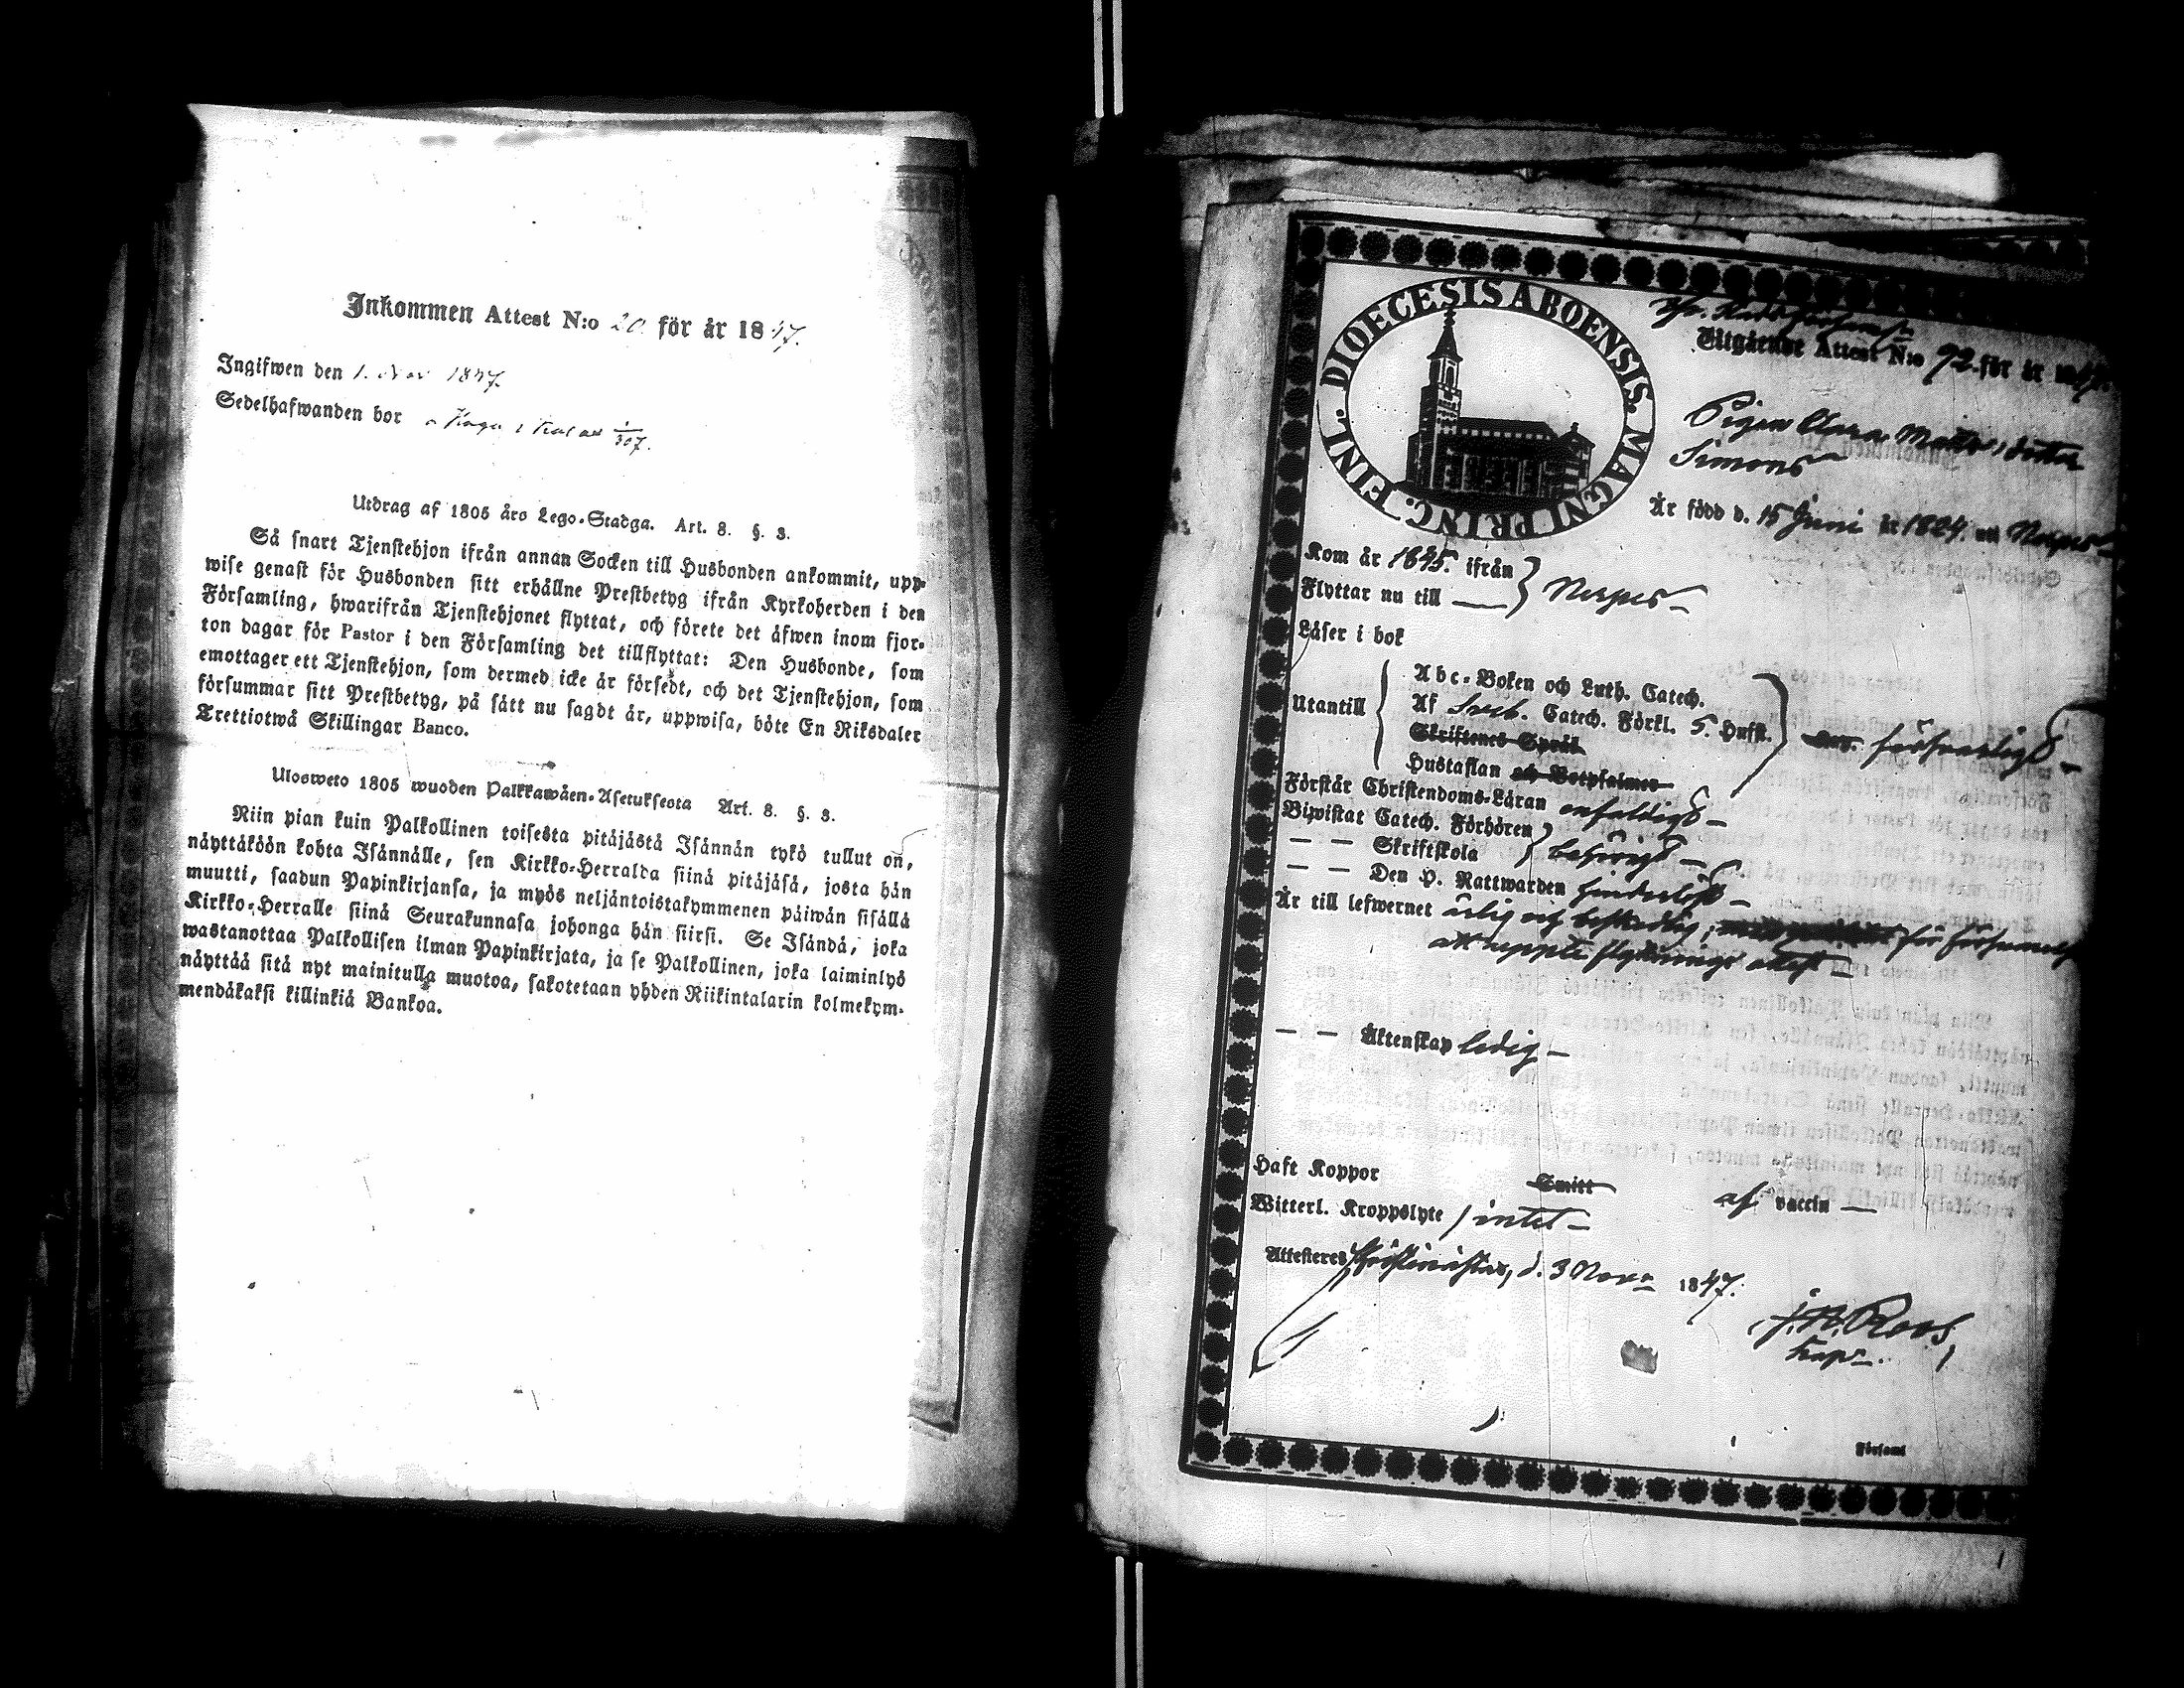 Inkommen Attest N:o 20 för år 1847.
Ingifwen den 1. Nov 1847.
Sedelhafwanden bor
307.
Utdrag af 1805 års Lego-Stadga. Art. 8. §. 3.
Så snart Tjenstehjon ifrån annan Socken till Husbonden ankommit, upp-
wise genast för Husbonden sitt erhållne Prestbetyg ifrån Kyrkoherden i den
Församling, hwarifrån Tjenstehjonet flyttat, och förete det äfwen inom fjor-
ton dagar för Pastor i den Församling det tillflyttat: Den Husbonde, som
emottager ett Tjenstehjon, som dermed icke är försedt, och det Tjenstehjon, som
försummar sitt Prestbetyg, på sätt nu sagdt är, uppwisa, böte En Riksdaler
Trettiotwå Skillingar Banco.
Ulosweto 1805 wuoden Palkkawäen-Asetuksesta Art. 8. §. 3.
Niin pian kuin Palkollinen toisesta pitäjästä Isännän tykö tullut on,
näyttäköön kohta Isännälle, sen Kirkko-Herralda siinä pitäjäsä, josta hän
muutti, saadun Papinkirjansa, ja myös neljäntoistakymmenen päiwän sisällä
Kirkko-Herralle siinä Seurakunnasa johonga hän siirsi. Se Isändä, joka
wastanottaa Palkollisen ilman Papinkirjata, ja se Palkollinen, joka laiminlyö
näyttää sitä nyt mainitulla muotoa, sakotetaan yhden Riikintalarin kolmekym-
mendäkaksi killinkiä Bankoa.
DIOECESIS ABOENSIS. MAGNI PRINC. FINL.
Utgående Attest N:o 92 för år 1847.
Pigan Clara Mattsdotter
Simons
Är född d. 15 Juni år 1824. uti Nerpes
Kom år 1845. ifrån
Flyttar nu till
Nerpes
Läser i bok
Utantill
Abc-Boken och Luth. Catech.
Af Sveb. Catech. Förkl. 5 Hufst.
Skriftenes Språk
Hustaflan och Botpsalmer
försvarligt
Förstår Christendoms-Läran enfaldigt
Biwistat Catech. Förhören
— — Skriftskola
behörigt
— — Den H. Nattwarden hinderlöst
Är till lefwernet ärlig och beskedlig, för försumels
att uppte flyttnings attest
— — Äktenskap ledig
Haft Koppor Smitt af vaccin
Witterl. Kroppslyte intet
Attesteres Christinestad, d. 3 Nov. 1847.
Roos,
Kapn.
Församl